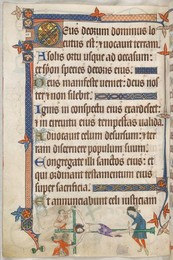 Deus deorum dominus lo
cutus est: et vocavit terram.
A solis ortu usque ad occasum:
ex syon species decoris eius.
Deus manifeste veniet: deus nos
ter et non silebit.
Ignis in conspectu eius exardescet:
et in circuitu eius tempestas valida.
Advocavit celum desursum: et ter
ram discernere populum suum.
Congregate illi sanctos eius:
qui ordinant testamentum eius
super sacrificia.
Et annunciabunt celi iusticiam